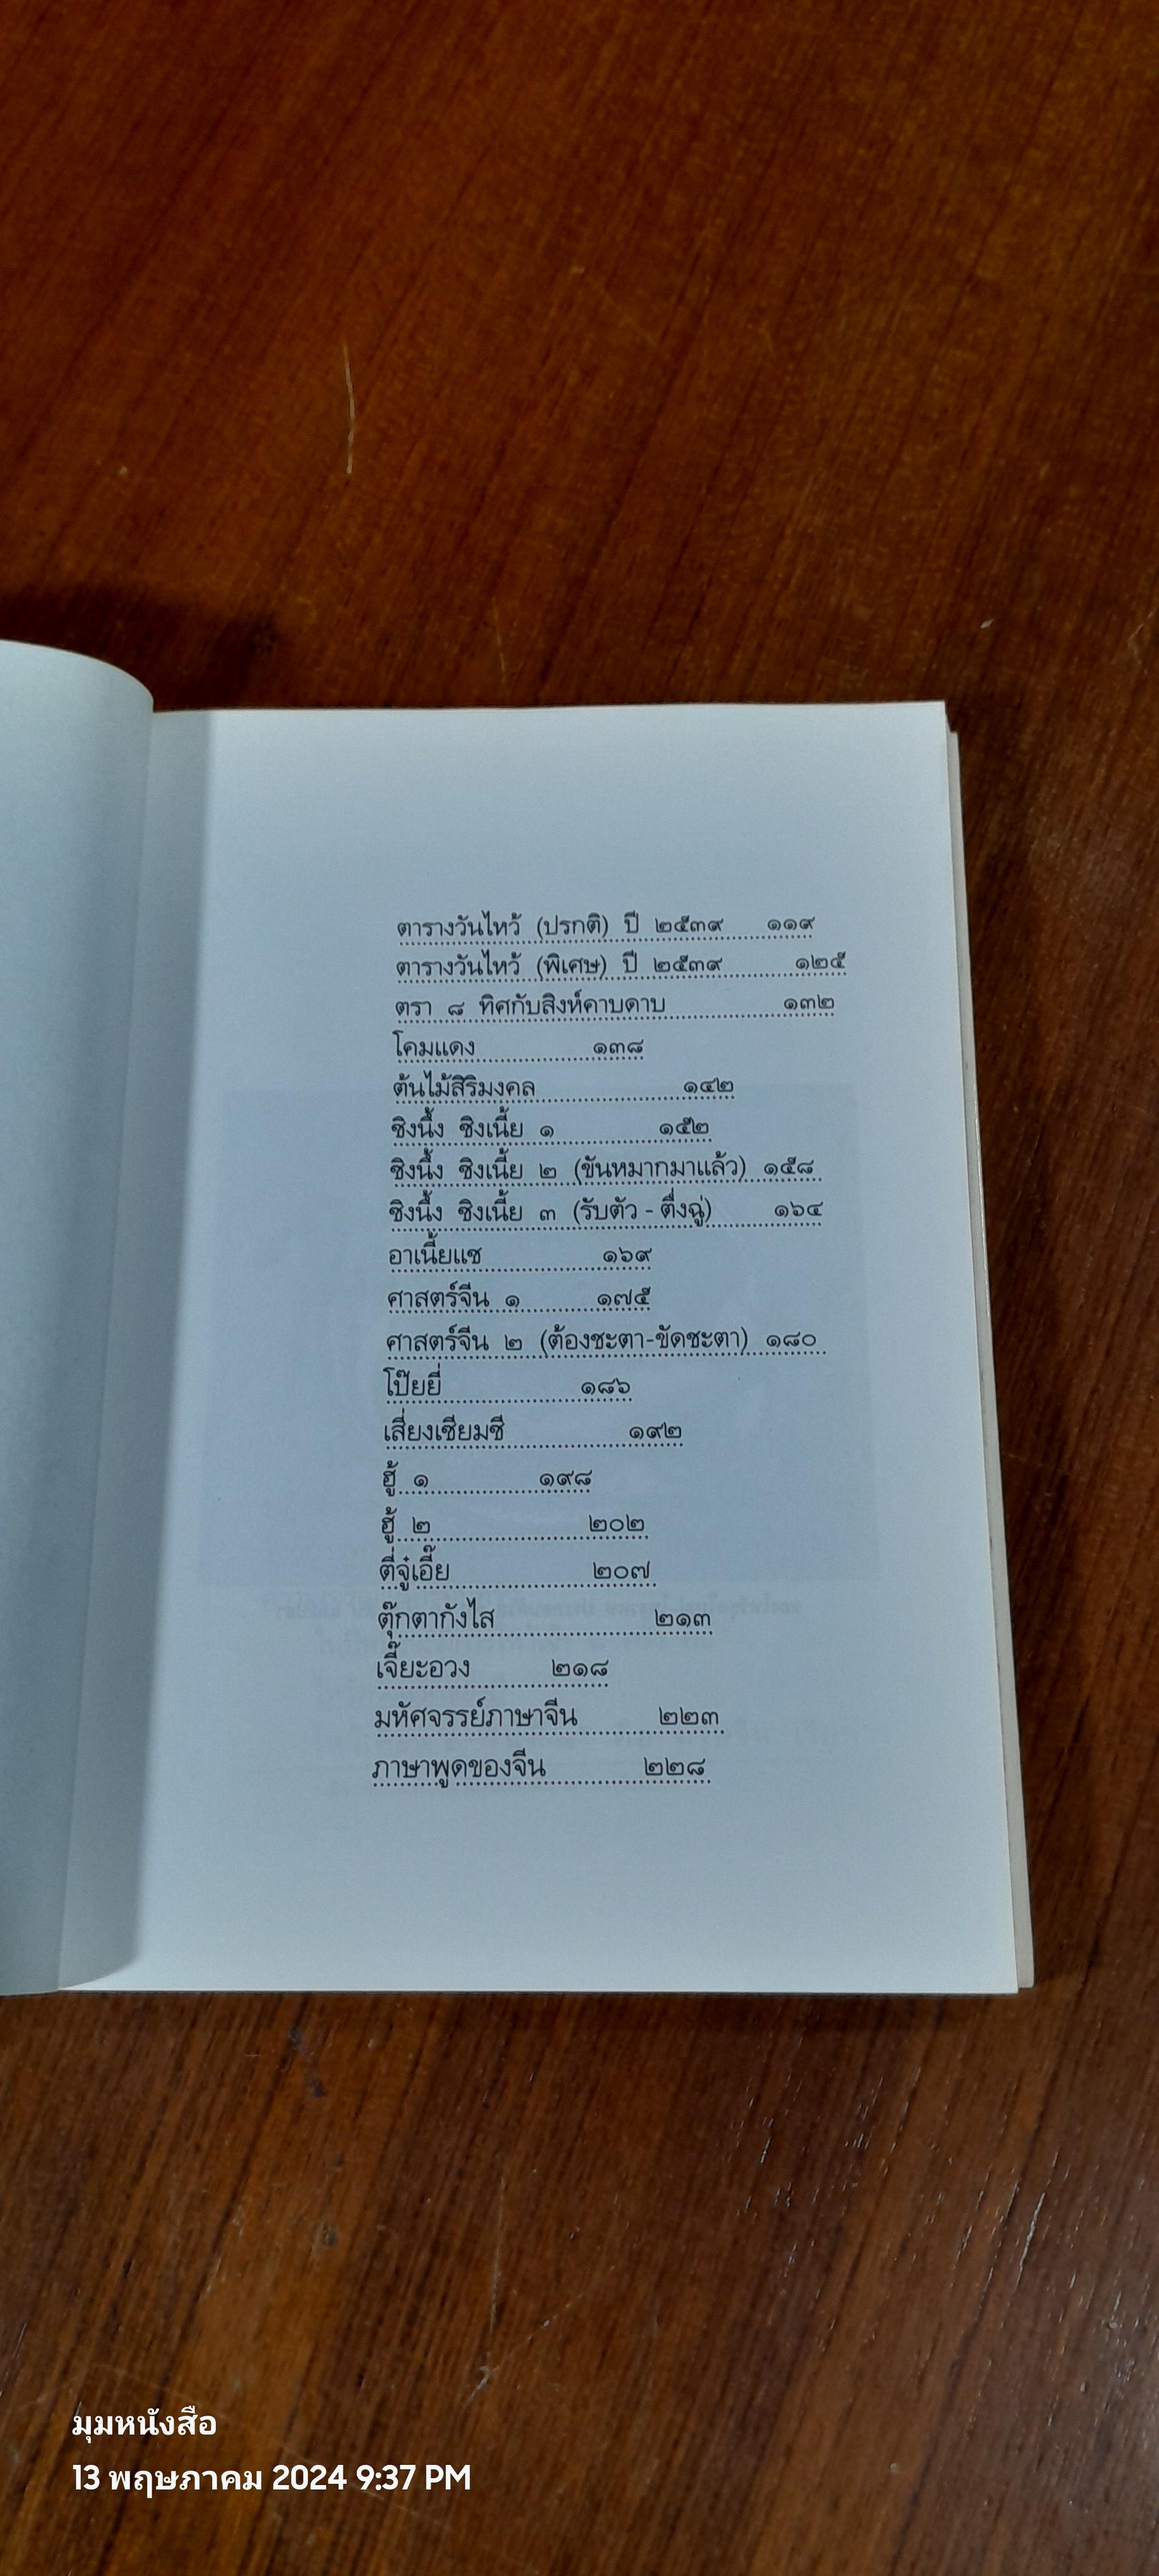 ตารางวันไหว้ (ปรกติ) ปี ๒๕๓๙ ๑๑๙
ตารางวันไหว้ (พิเศษ) ปี ๒๕๓๙ ๑๒๕
ตรา ๘ ทิศกับสิงห์คาบดาบ ๑๓๒
โคมแดง ๑๓๘
ต้นไม้สิริมงคล ๑๔๒
ชิงนึ้ง ชิงเนี้ย ๑ ๑๕๒
ชิงนึ้ง ชิงเนี้ย ๒ (ขันหมากมาแล้ว) ๑๕๘
ชิงนึ้ง ชิงเนี้ย ๓ (รับตัว - ตื่งฉู่) ๑๖๔
อาเนี้ยแซ ๑๖๙
ศาสตร์จีน ๑ ๑๗๕
ศาสตร์จีน ๒ (ต้องชะตา-ขัดชะตา) ๑๘๐
โป๊ยยี่ ๑๘๖
เสี่ยงเซียมซี ๑๙๒
ฮู้ ๑ ๑๙๘
ฮู้ ๒ ๒๐๒
ตี่จู๋เอี๊ย ๒๐๗
ตุ๊กตากังไส ๒๑๓
เจี๊ยะอวง ๒๑๘
มหัศจรรย์ภาษาจีน ๒๒๓
ภาษาพูดของจีน ๒๒๘
มุมหนังสือ
13 พฤษภาคม 2024 9:37 PM